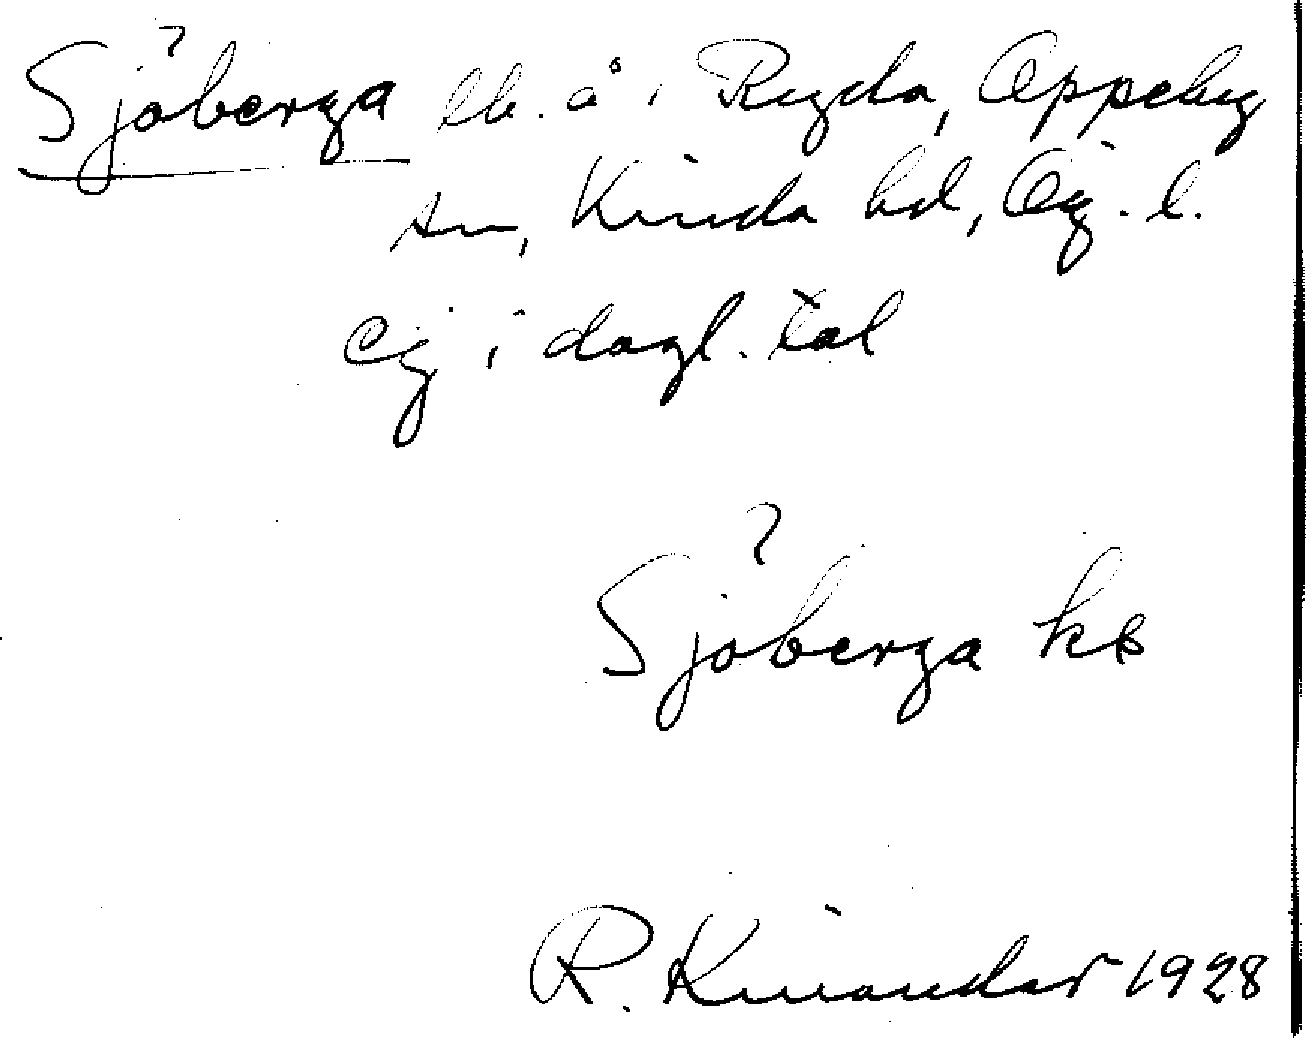 ?
Sjöberga lb. å i Rygda, Oppeby
sn, Kinda hd, Ög. l.
Ej i dagl. tal
?
Sjöberga ks
R. Kinander 1928